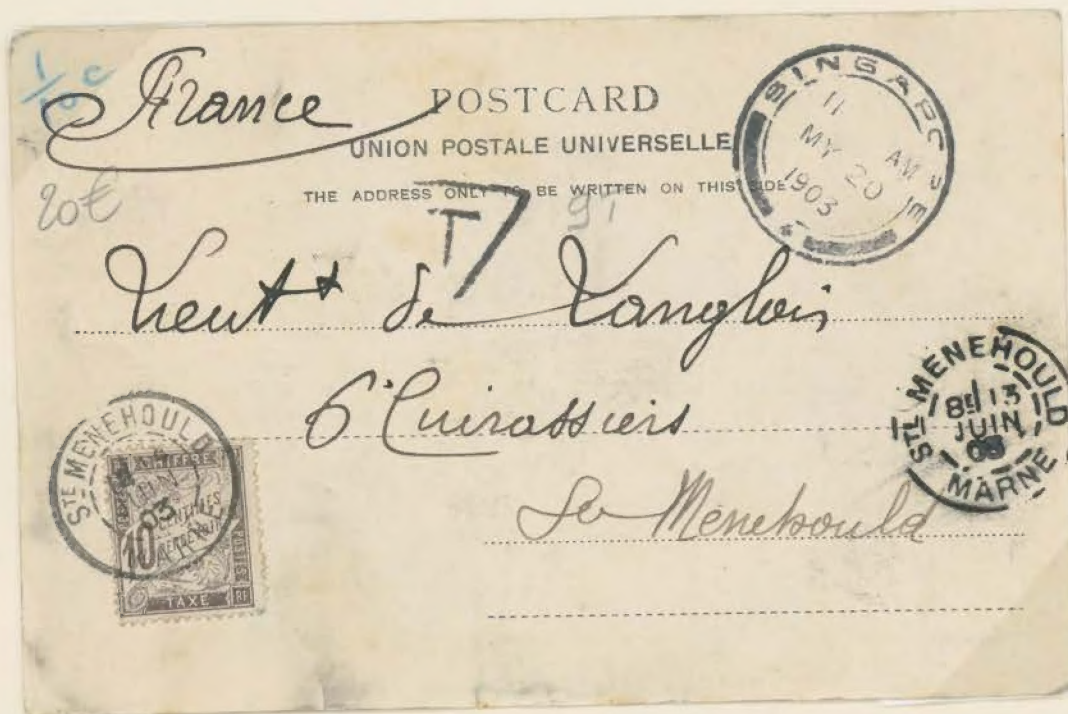 France
POSTCARD
UNION POSTALE UNIVERSELLE
THE ADDRESS ONLY TO BE WRITTEN ON THIS SIDE
20€
T
SINGAPORE
11 AM
MY 20
1903
Lieutt de Langlois
6e Cuirassiers
Ste Menehould
STE MENEHOULD
13
JUIN
03
MARNE
STE MENEHOULD
JUIN
03
MARNE
CHIFFRE
10
TAXE
RF